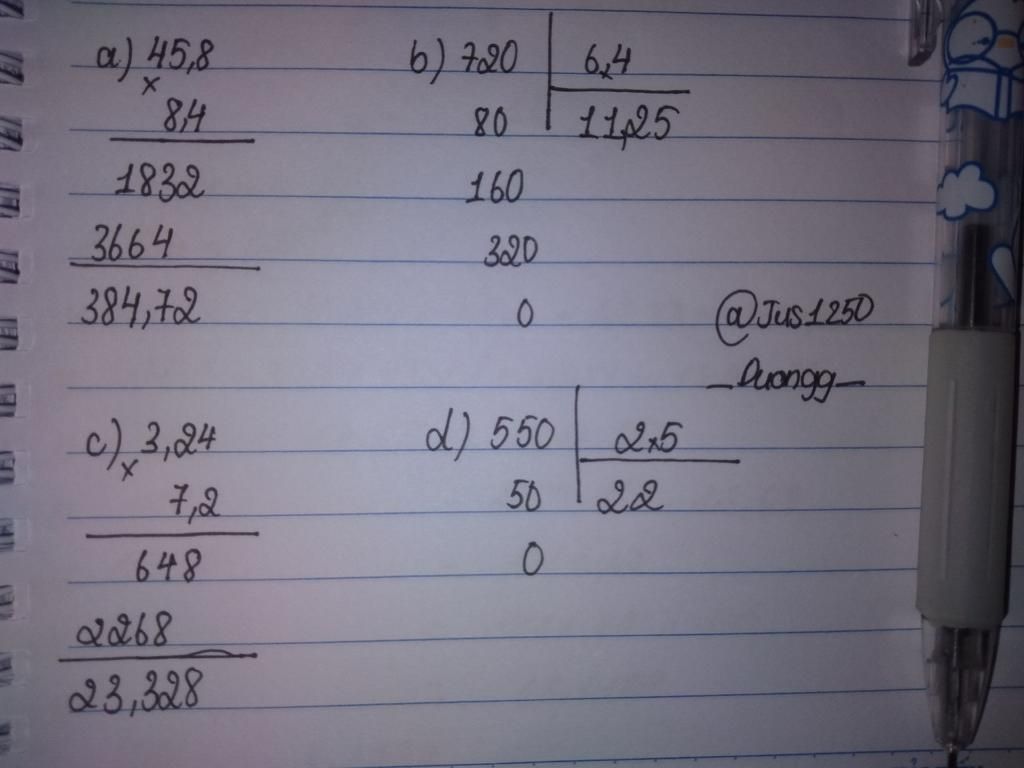 a) 45,8
x
8,4
1832
3664
384,72
b) 720 6,4
80 11,25
160
320
0
@Jus1250
_Duongg_
c) 3,24
x
7,2
648
2268
23,328
d) 550 2,5
50 22
0